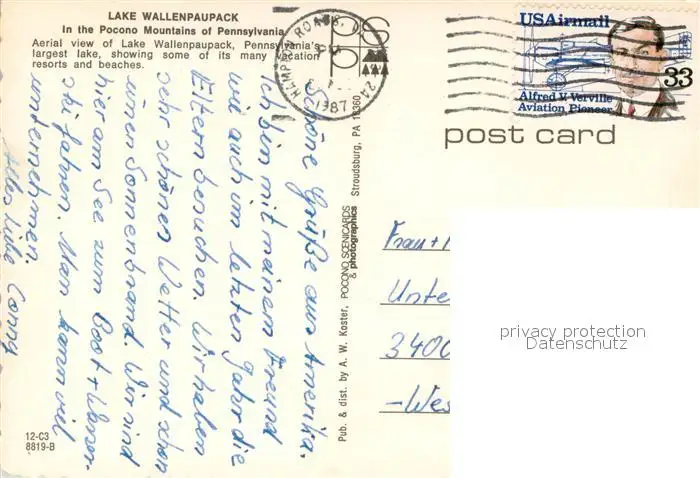 LAKE WALLENPAUPACK
In the Pocono Mountains of Pennsylvania
Aerial view of Lake Wallenpaupack, Pennsylvania's
largest lake, showing some of its many vacation
resorts and beaches.
USAirmail
33
Alfred V. Verville
Aviation Pioneer
HAMPTON ROADS, VA
1987
post card
Schöne Grüße aus Amerika.
Ich bin mit meinem Freund
wie auch im letzten Jahr die
Eltern besuchen. Wir haben
sehr schönes Wetter und schon
einen Sonnenbrand. Wir sind
hie am See zum Boot + Wasser-
ski fahren. Man kann viel
unternehmen.
Alles Liebe Conny
Pub. & dist. by A. W. Koster, POCONO SCENICARDS
& photographics Stroudsburg, PA 18360
Frau +
Unte
3400
-Wes
privacy protection
Datenschutz
12-C3
8819-B